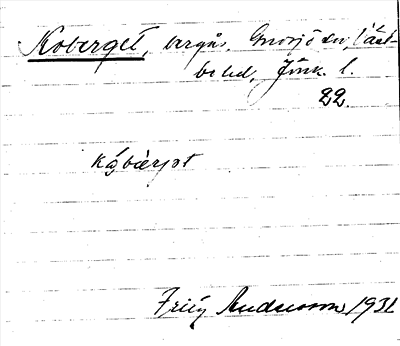 Koberget, bergås. Gnosjö sn, Väst-
bo hd, Jönk. l.
22.
Kǫ́bær̀jət
Frity Andersson 1931